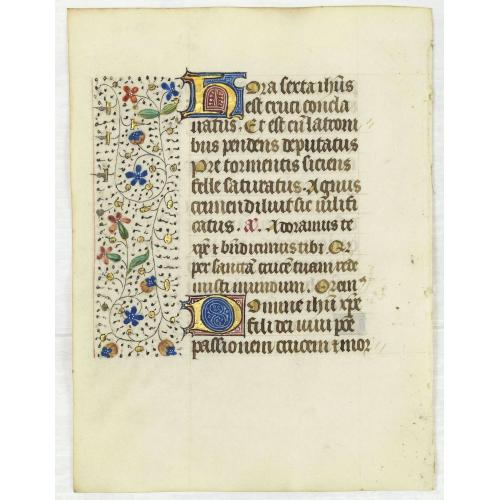 Hora sexta ihūs
est cruci concla
uatus. Et est cū latroni
bus pendens deputatus
Pre tormentis siciens
felle saturatus. Agnus
crimen diluit sic iustifi
catus. Adoramus te
xp̄e et bn̄dicimus tibi. Qr
per sanctā crucē tuam rede
misti mundum. Orem
Domine ihū xp̄e
fili dei uiui pōe
passionem crucem et mor